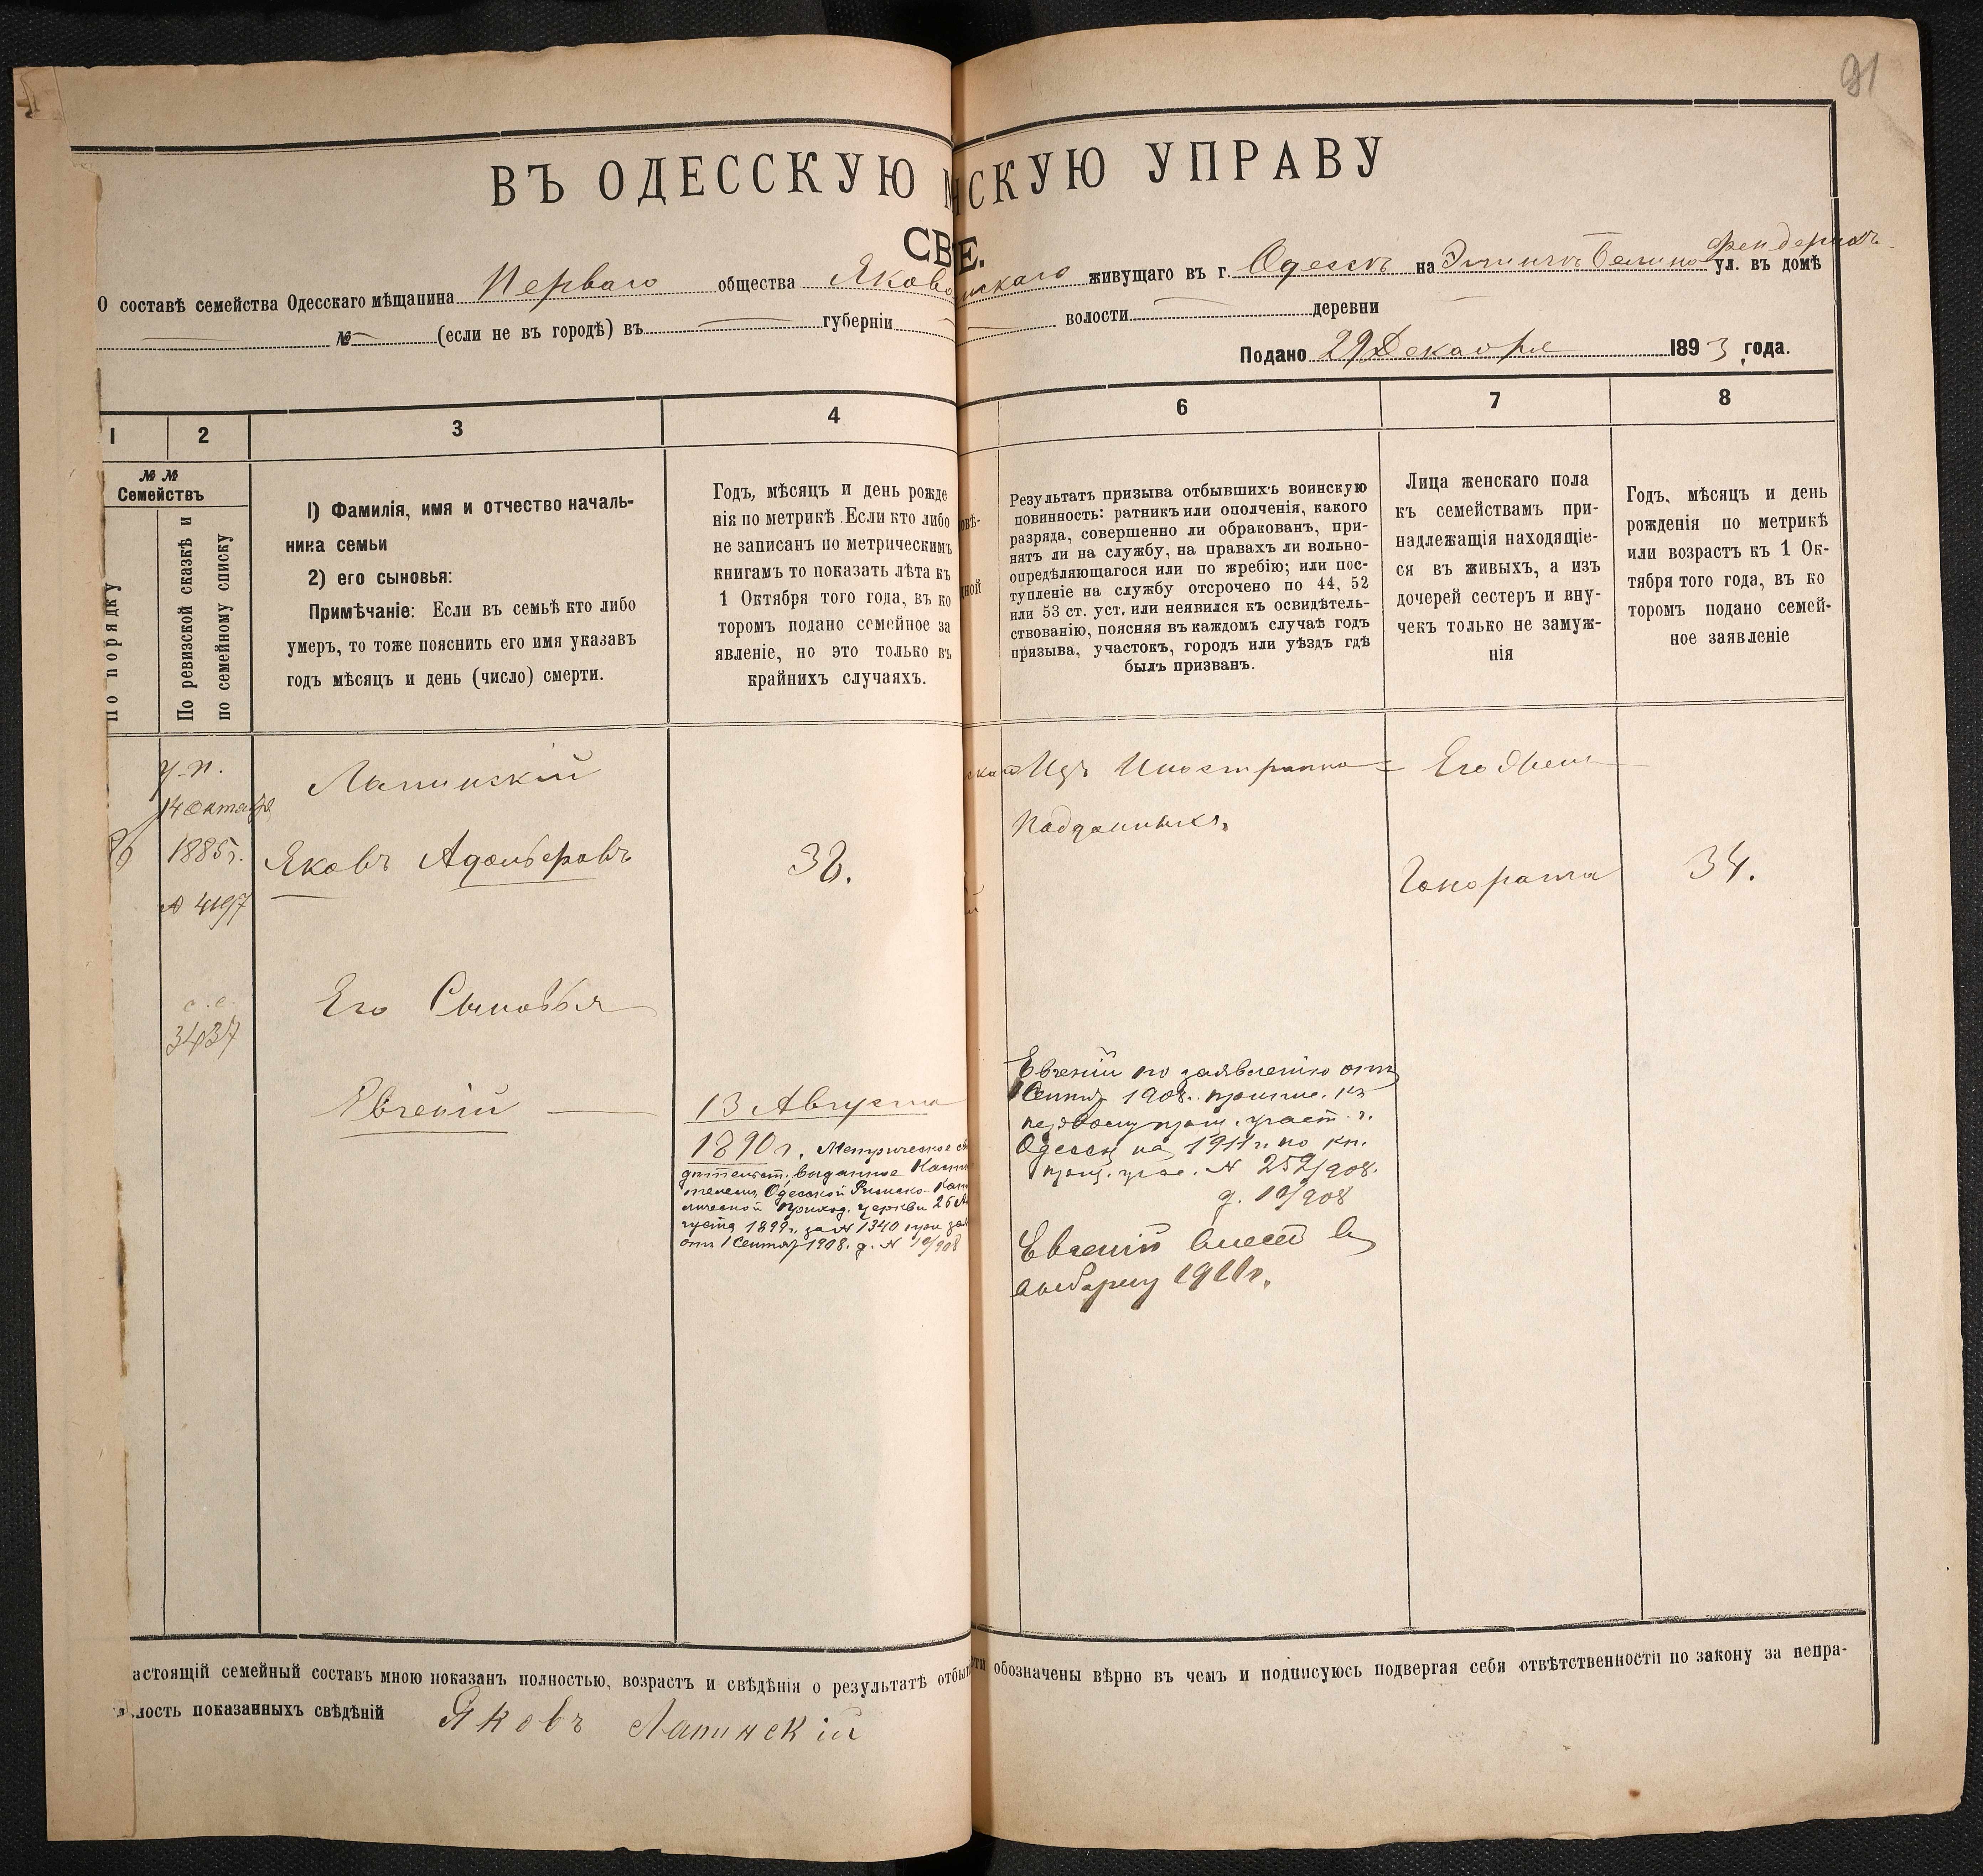 91
ВЪ ОДЕССКУЮ М НСКУЮ УПРАВУ
СВ Е.
О составѣ семейства Одесскаго мѣщанина Перваго общества Яково нскаго живущаго въ г. Одессѣ на ул. въ домѣ
№ (если не въ городѣ) въ губерніи волости деревни
Подано 29 Декабря 1893 года.
1 2 3 4 6 7 8
№ №
Семействъ
По порядку
По ревизской сказкѣ и
по семейному списку
1) Фамилія, имя и отчество началь-
ника семьи
2) его сыновья:
Примѣчаніе: Если въ семьѣ кто либо
умеръ, то тоже пояснить его имя указавъ
годъ мѣсяцъ и день (число) смерти.
Годъ, мѣсяцъ и день рожде
нія по метрикѣ. Если кто либо
не записанъ по метрическимъ
книгамъ то показать лѣта къ
1 Октября того года, въ ко
торомъ подано семейное за
явленіе, но это только въ
крайнихъ случаяхъ.
овѣ-
ной
Результатъ призыва отбывшихъ воинскую
повинность: ратникъ или ополченія, какого
разряда, совершенно ли обракованъ, при-
нятъ ли на службу, на правахъ ли вольно-
опредѣляющагося или по жребію; или пос-
тупленіе на службу отсрочено по 44, 52
или 53 ст. уст. или неявился къ освидѣтель-
ствованію, поясняя въ каждомъ случаѣ годъ
призыва, участокъ, городъ или уѣздъ гдѣ
былъ призванъ.
Лица женскаго пола
къ семействамъ при-
надлежащія находящіе-
ся въ живыхъ, а изъ
дочерей сестеръ и вну-
чекъ только не замуж-
нія
Годъ, мѣсяцъ и день
рожденія по метрикѣ
или возрастъ къ 1 Ок-
тября того года, въ ко
торомъ подано семей-
ное заявленіе
у.п.
14 октября
1885г.
№ 4197
с.с.
3437
Лапинскій
Яковъ Адольфовъ
38.
Изъ Иностранно=
Подданныхъ.
Его Жена
Гонората
34.
Его Сыновья
Явгеній
13 Августа
1890 г. Метрическое сви
дѣтельст. выданное Насто
телемъ Одесской Римско-Кат
лической приход. церкви 26 Ав
густа 1899г. за № 1340 при зая
отъ 1 Сентяб 1908. д. № 19/908
Евгеній по заявленію отъ
1 Сентяб 1908г. приписе. къ
первому приз. участ. г.
Одессы на 1911г. по кн.
приз. учас. № 259/908.
д. 19/908
Евгеній внесен в
алборец 1911г.
астоящій семейный составъ мною показанъ полностью, возрастъ и свѣдѣнія о результатѣ отбы ти обозначены вѣрно въ чемъ и подписуюсь подвергая себя отвѣтственности по закону за непра-
лость показанныхъ свѣдѣній Яковъ Лапинскій